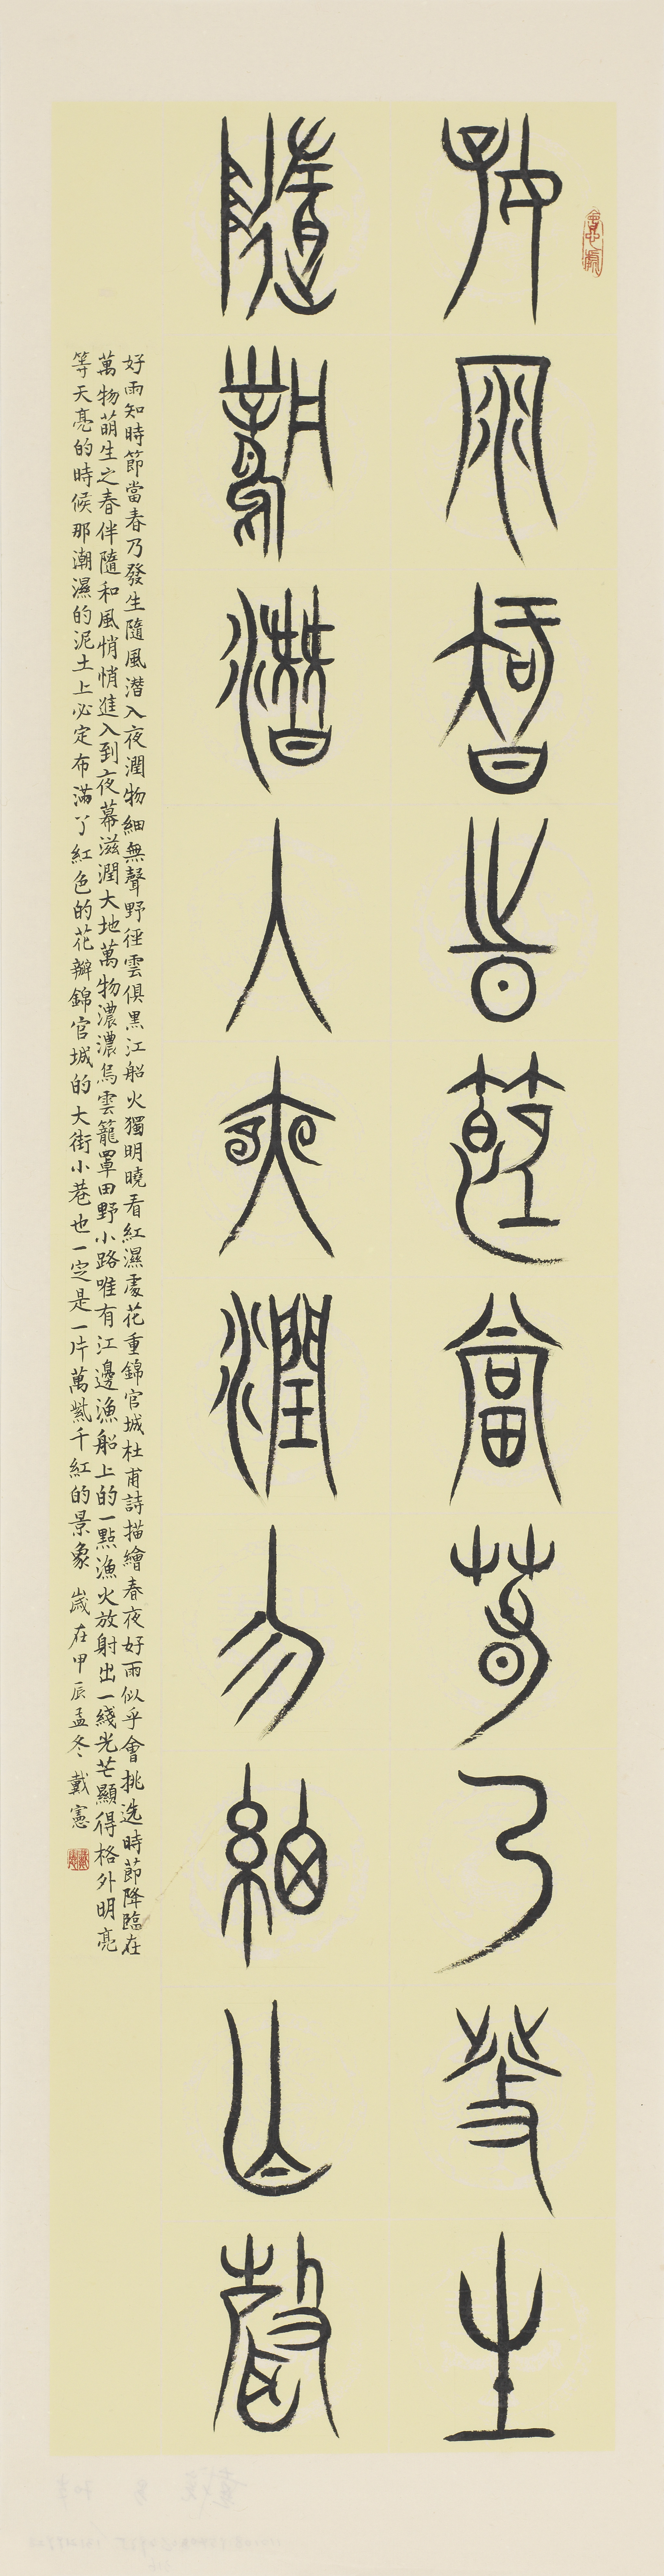 好雨知時節當春乃發生
隨風潛入夜潤物細無聲
好雨知時節當春乃發生隨風潜入夜潤物細無聲野徑雲俱黑江船火獨明曉看紅濕處花重錦官城杜甫詩描繪春夜好雨似乎會挑选時節降臨在
萬物萌生之春伴隨和風悄悄進入到夜幕滋潤大地萬物濃濃烏雲籠罩田野小路唯有江邊漁船上的一點漁火放射出一綫光芒顯得格外明亮
等天亮的時候那潮濕的泥土上必定布滿了紅色的花瓣錦官城的大街小巷也一定是一片萬紫千紅的景象 歲在甲辰孟冬 戴憲